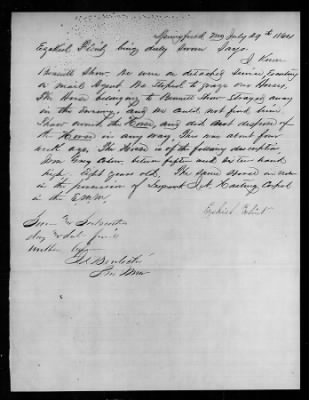 Springfield Mo July 29th 1864
Ezekiel being duly sworn says.
I know
Bennett Show. We were on detached service Escorting
a mail Agent. We stoped to graze our Horses.
The Horse belonging to Bennett Show strayed away
in the Evening, and we could not find him.
Show owned the Horse, and did not dispose of
the Horse in any way. This was about four
weeks ago. The Horse is of the following description
Iron Gray Color, between fifteen and sixteen hands
high. Eight years old. The same Horse is now
in the possession of Sergeant
in the
Ezekiel
Sworn to & Subscribed
day & date
written before